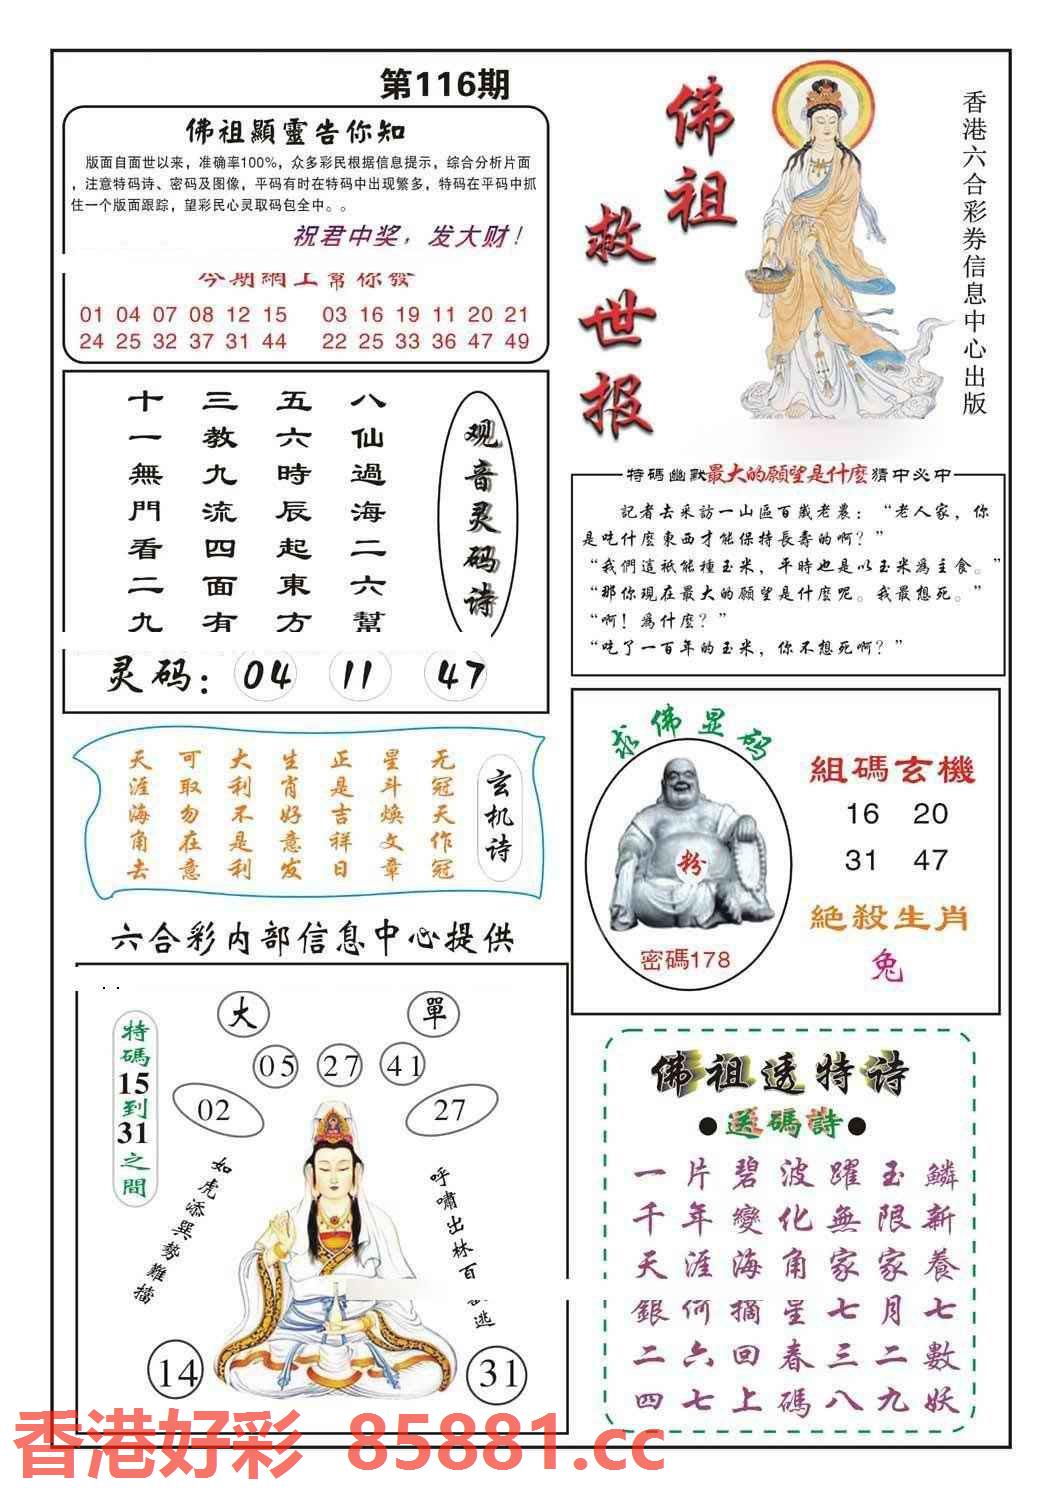 第116期
佛祖顯靈告你知
版面自面世以来，准确率100%，众多彩民根据信息提示，综合分析片面
，注意特码诗、密码及图像，平码有时在特码中出现繁多，特码在平码中抓
住一个版面跟踪，望彩民心灵取码包全中。。
祝君中奖，发大财！
今期網上幫你發
01 04 07 08 12 15 03 16 19 11 20 21
24 25 32 37 31 44 22 25 33 36 47 49
佛祖救世报
香港六合彩券信息中心出版
观音灵码诗
八仙過海二六幫
五六時辰起東方
三教九流四面有
十一無門看二九
灵码：04 11 47
特碼幽默最大的願望是什麽猜中必中
記者去采訪一山區百歲老農：“老人家，你
是吃什麽東西才能保持長壽的啊？”
“我們這祇能種玉米，平時也是以玉米爲主食。”
“那你現在最大的願望是什麽呢。我最想死。”
“啊！爲什麽？”
“吃了一百年的玉米，你不想死啊？”
玄机诗
无冠天作冠
星斗焕文章
正是吉祥日
生肖好意发
大利不是利
可取勿在意
天涯海角去
求佛显码
粉
密碼178
組碼玄機
16 20
31 47
絕殺生肖
兔
六合彩内部信息中心提供
特碼15到31之間
大 單
05 27 41
02 27
如虎添異勢難擋
呼嘯出林百
逃
14 31
佛祖透特诗
●送碼詩●
一片碧波躍玉鱗
千年變化無限新
天涯海角家家養
銀何摘星七月七
二六回春三二數
四七上碼八九妖
香港好彩 85881.cc